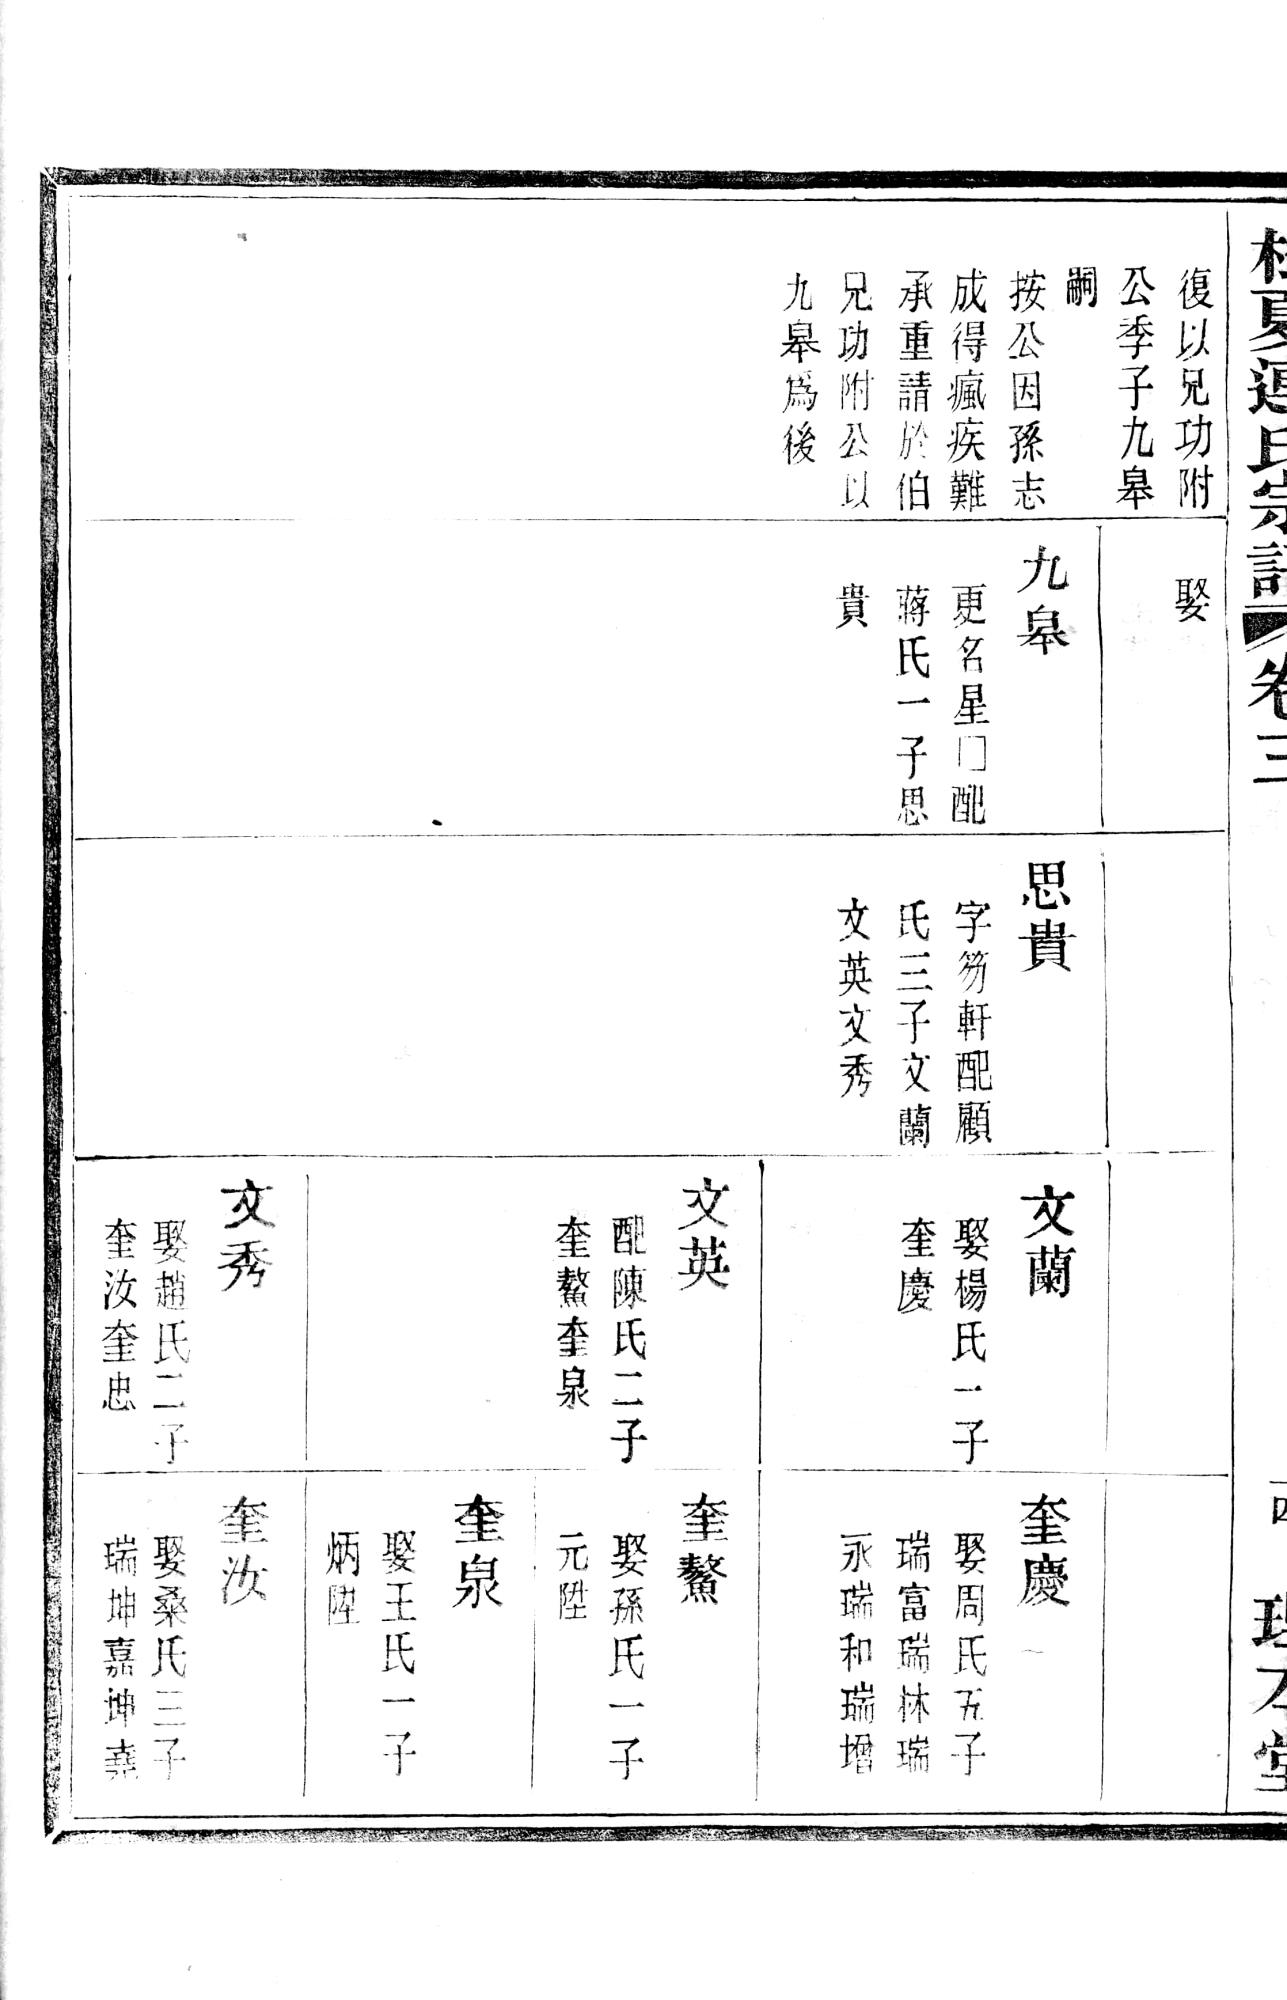 夏連氏宗譜 卷三
四
堂
復以兄功附
公季子九皋
嗣
按公因孫志
成得瘋疾難
承重請於伯
兄功附公以
九皋爲後
娶
九皋
更名星□配
蔣氏一子思
貴
思貴
字笏軒配顧
氏三子文蘭
文英文秀
文蘭
娶楊氏一子
奎慶
文英
配陳氏二子
奎鰲奎泉
文秀
娶趙氏二子
奎汝奎忠
奎慶
娶周氏五子
瑞富瑞林瑞
永瑞和瑞增
奎鰲
娶孫氏一子
元陞
奎泉
娶王氏一子
炳陞
奎汝
娶桑氏三子
瑞坤嘉坤堯